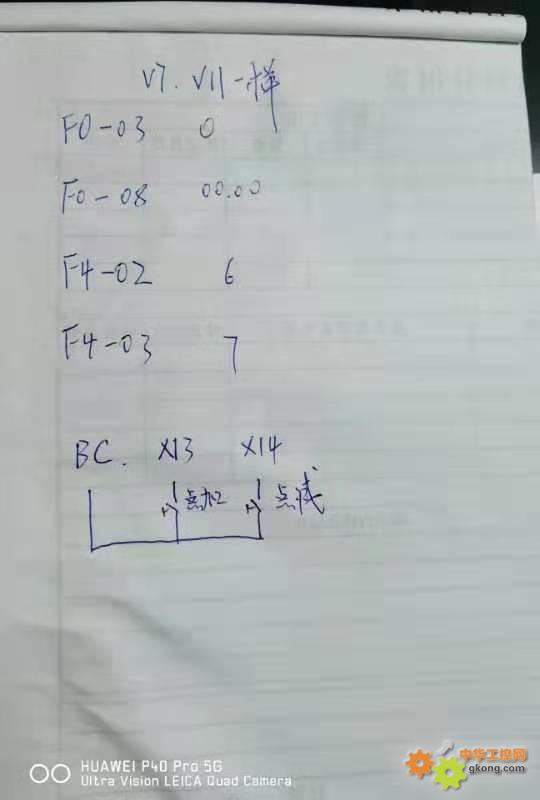 V7. V11一样
F0-03 0
F0-08 00.00
F4-02 6
F4-03 7
BC. X13 X14
点加 点减
HUAWEI P40 Pro 5G
Ultra Vision LEICA Quad Camera
中华工控网
gkong.com